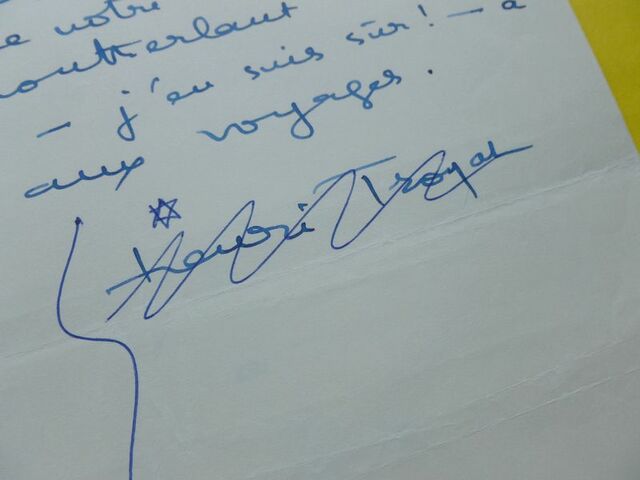 e notre
Montherlant
- j'en suis sûr! - a
aux voyages.
Henri Troyat